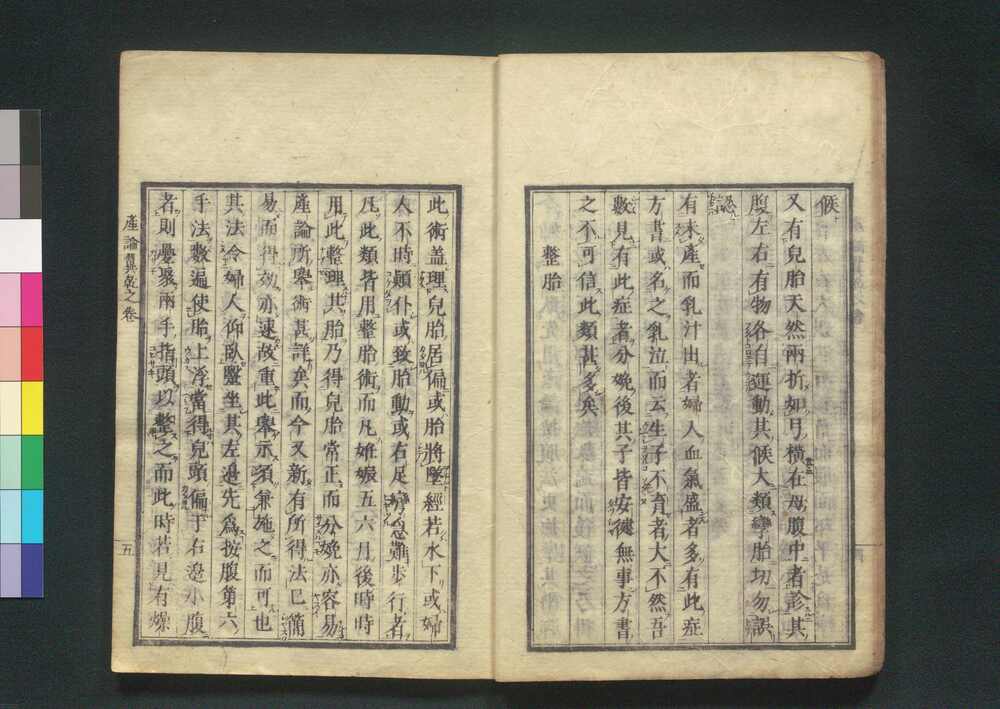 候
又有兒胎天然兩折如弓橫在母腹中者診其
腹左右有物各自運動其候大類孿胎切勿誤
有未產而乳汁出者婦人血氣盛者多有此症
方書或名之乳泣而云生子不育者大不然吾
數見有此症者分娩後其子皆安健無事方書
之不可信此類甚多矣
整胎
此術蓋理兒胎居偏或胎將墜經若水下或婦
人不時顚仆或致胎動或右足攣急難步行者
凡此類皆用整胎術而凡姙娠五六月後時時
用此整理其胎乃得兒胎常正而分娩亦容易
產論所舉術甚詳矣而今又新有所得法已簡
易而得效亦速故重此舉示須兼施之而可也
其法令婦人仰臥醫坐其左邊先爲按腹第六
手法數遍使胎上浮當得兒頭偏于右邊小腹
者則疊聚兩手指頭以整之而此時若見有燥
產論翼乾之卷
五